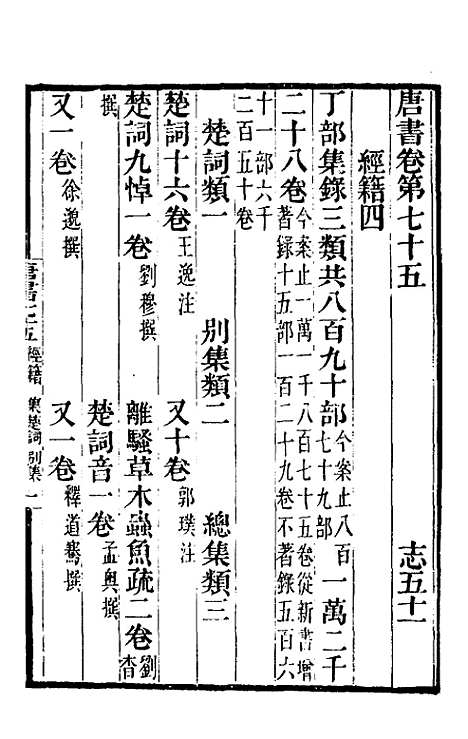 唐書卷第七十五 志五十一
經籍四
丁部集錄三類共八百九十部今案止八百七十九部一萬二千
二十八卷今案止一萬一千八百七十五卷從新書增著錄十五部一百二十九卷不著錄五百六
十一部六千二百五十卷
楚詞類一 別集類二 總集類三
楚詞十六卷王逸注 又十卷郭璞注
楚詞九悼一卷劉穆撰 離騷草木蟲魚疏二卷劉杳
撰 楚詞音一卷孟奧撰
又一卷徐邈撰 又一卷釋道騫撰
唐書七十五 經籍 集楚詞 別集 一